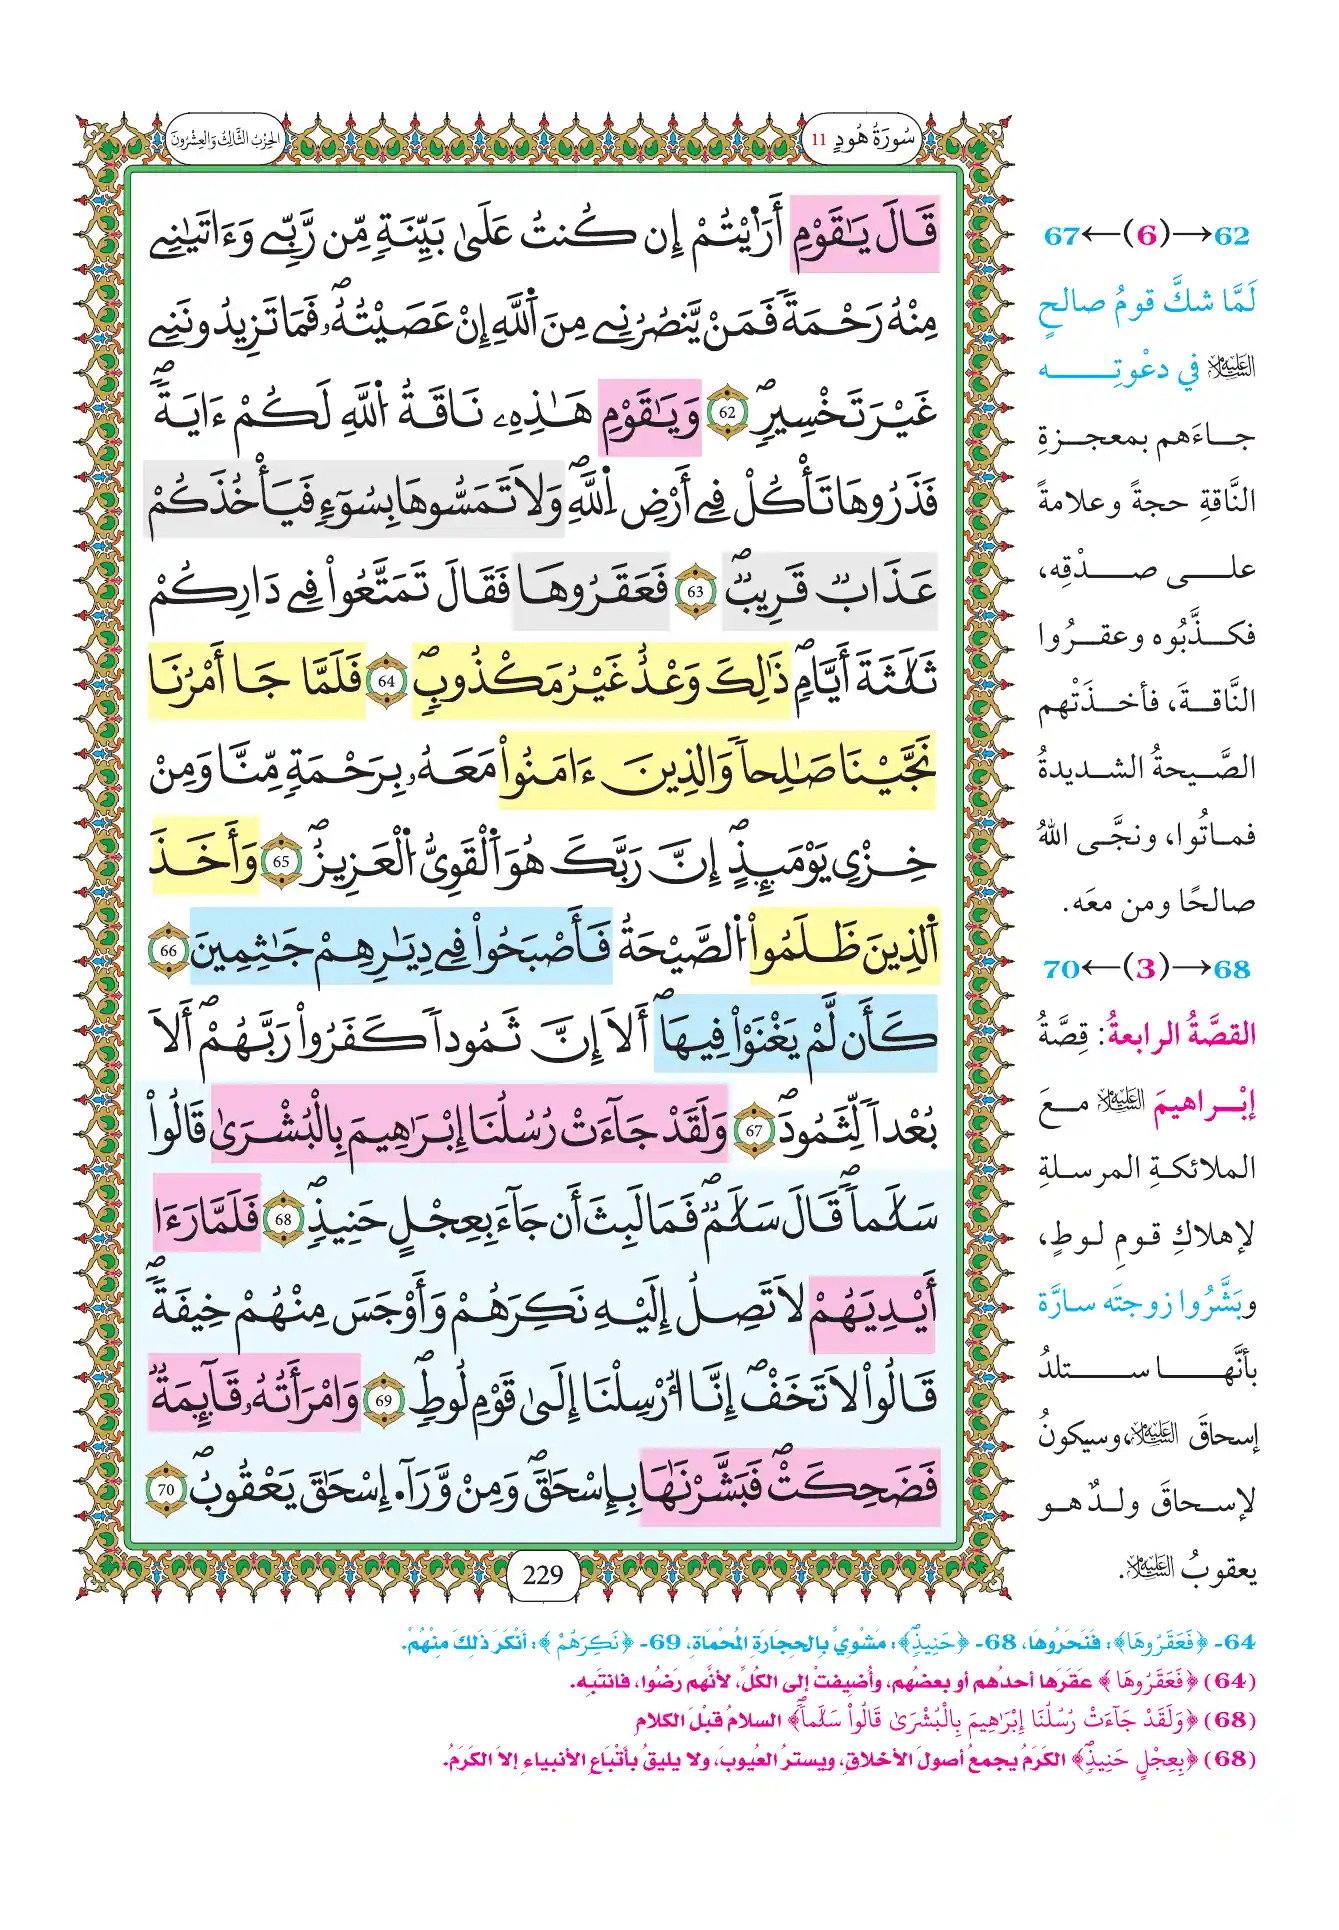 سُورَةُ هُودٍ 11
الحِزْبُ الثَّالِثُ وَالعِشْرُونَ
قَالَ يَٰقَوْمِ أَرَٰٓيْتُمْ إِن كُنتُ عَلَىٰ بَيِّنَةٍ مِّن رَّبِّے وَءَاتَيٰنِے
مِنْهُ رَحْمَةً فَمَنْ يَّنصُرُنِے مِنَ اَ۬للَّهِ إِنْ عَصَيْتُهُۥ فَمَا تَزِيدُونَنِے
غَيْرَ تَخْسِيرٍ 62 وَيَٰقَوْمِ هَٰذِهِۦ نَاقَةُ اُ۬للَّهِ لَكُمْ ءَايَةً
فَذَرُوهَا تَأْكُلْ فِےٓ أَرْضِ اِ۬للَّهِ وَلَا تَمَسُّوهَا بِسُوٓءٍ فَيَأْخُذَكُمْ
عَذَابٌ قَرِيبٌ 63 فَعَقَرُوهَا فَقَالَ تَمَتَّعُواْ فِے دَارِكُمْ
ثَلَٰثَةَ أَيَّامٍ ذَٰلِكَ وَعْدٌ غَيْرُ مَكْذُوبٍ 64 فَلَمَّا جَا أَمْرُنَا
نَجَّيْنَا صَٰلِحاً وَالذِينَ ءَامَنُواْ مَعَهُۥ بِرَحْمَةٍ مِّنَّا وَمِنْ
خِزْيِ يَوْمَئِذٍ إِنَّ رَبَّكَ هُوَ اَ۬لْقَوِيُّ اُ۬لْعَزِيزُ 65 وَأَخَذَ
اَ۬لذِينَ ظَلَمُواْ اُ۬لصَّيْحَةُ فَأَصْبَحُواْ فِے دِيَٰرِهِمْ جَٰثِمِينَ 66
كَأَن لَّمْ يَغْنَوْاْ فِيهَا أَلَا إِنَّ ثَمُوداً كَفَرُواْ رَبَّهُمْ أَلَا
بُعْداً لِّثَمُودَ 67 وَلَقَدْ جَآءَتْ رُسُلُنَا إِبْرَٰهِيمَ بِالْبُشْرَىٰ قَالُواْ
سَلَٰماً قَالَ سَلَٰمٌ فَمَا لَبِثَ أَن جَآءَ بِعِجْلٍ حَنِيذٍ 68 فَلَمَّا رَءَا
أَيْدِيَهُمْ لَا تَصِلُ إِلَيْهِ نَكِرَهُمْ وَأَوْجَسَ مِنْهُمْ خِيفَةً
قَالُواْ لَا تَخَفْ إِنَّا أُرْسِلْنَا إِلَىٰ قَوْمِ لُوطٍ 69 وَامْرَأَتُهُۥ قَآئِمَةٌ
فَضَحِكَتْ فَبَشَّرْنَٰهَا بِإِسْحَٰقَ وَمِنْ وَّرَآءِ اِ۪سْحَٰقَ يَعْقُوبُ 70
229
62→(6)←67
لَمَّا شكَّ قومُ صالحٍ
عليه السلام في دعْوتِـــه
جاءَهم بمعجزةِ
النَّاقةِ حجةً وعلامةً
على صدْقِه،
فكذَّبُوه وعقرُوا
النَّاقةَ، فأخذَتْهم
الصَّيحةُ الشديدةُ
فماتُوا، ونجَّى اللهُ
صالحًا ومن معَه.
68→(3)←70
القصَّةُ الرابعةُ: قِصَّةُ
إبْراهيمَ عليه السلام معَ
الملائكةِ المرسلةِ
لإهلاكِ قومِ لوطٍ،
وبَشَّرُوا زوجتَه سارَّة
بأنَّها ستلدُ
إسحاقَ عليه السلام، وسيكونُ
لإسحاقَ ولدٌ هو
يعقوبُ عليه السلام.
64- ﴿فَعَقَرُوهَا﴾: فَنَحَرُوهَا، 68- ﴿حَنِيذٍ﴾: مَشْوِيٍّ بِالحِجَارَةِ المُحْمَاةِ، 69- ﴿نَكِرَهُمْ﴾: أَنْكَرَ ذَلِكَ مِنْهُمْ.
(64) ﴿فَعَقَرُوهَا﴾ عقَرَها أحدُهم أو بعضُهم، وأُضِيفتْ إلى الكُلِّ، لأنَّهم رَضُوا، فانتَبِه.
(68) ﴿وَلَقَدْ جَآءَتْ رُسُلُنَا إِبْرَٰهِيمَ بِالْبُشْرَىٰ قَالُواْ سَلَٰماً﴾ السلامُ قبْلَ الكلامِ
(68) ﴿بِعِجْلٍ حَنِيذٍ﴾ الكَرَمُ يجمعُ أصولَ الأخلاقِ، ويسترُ العُيوبَ، ولا يليقُ بأتْبَاعِ الأنبياءِ إلاَّ الكَرَمُ.